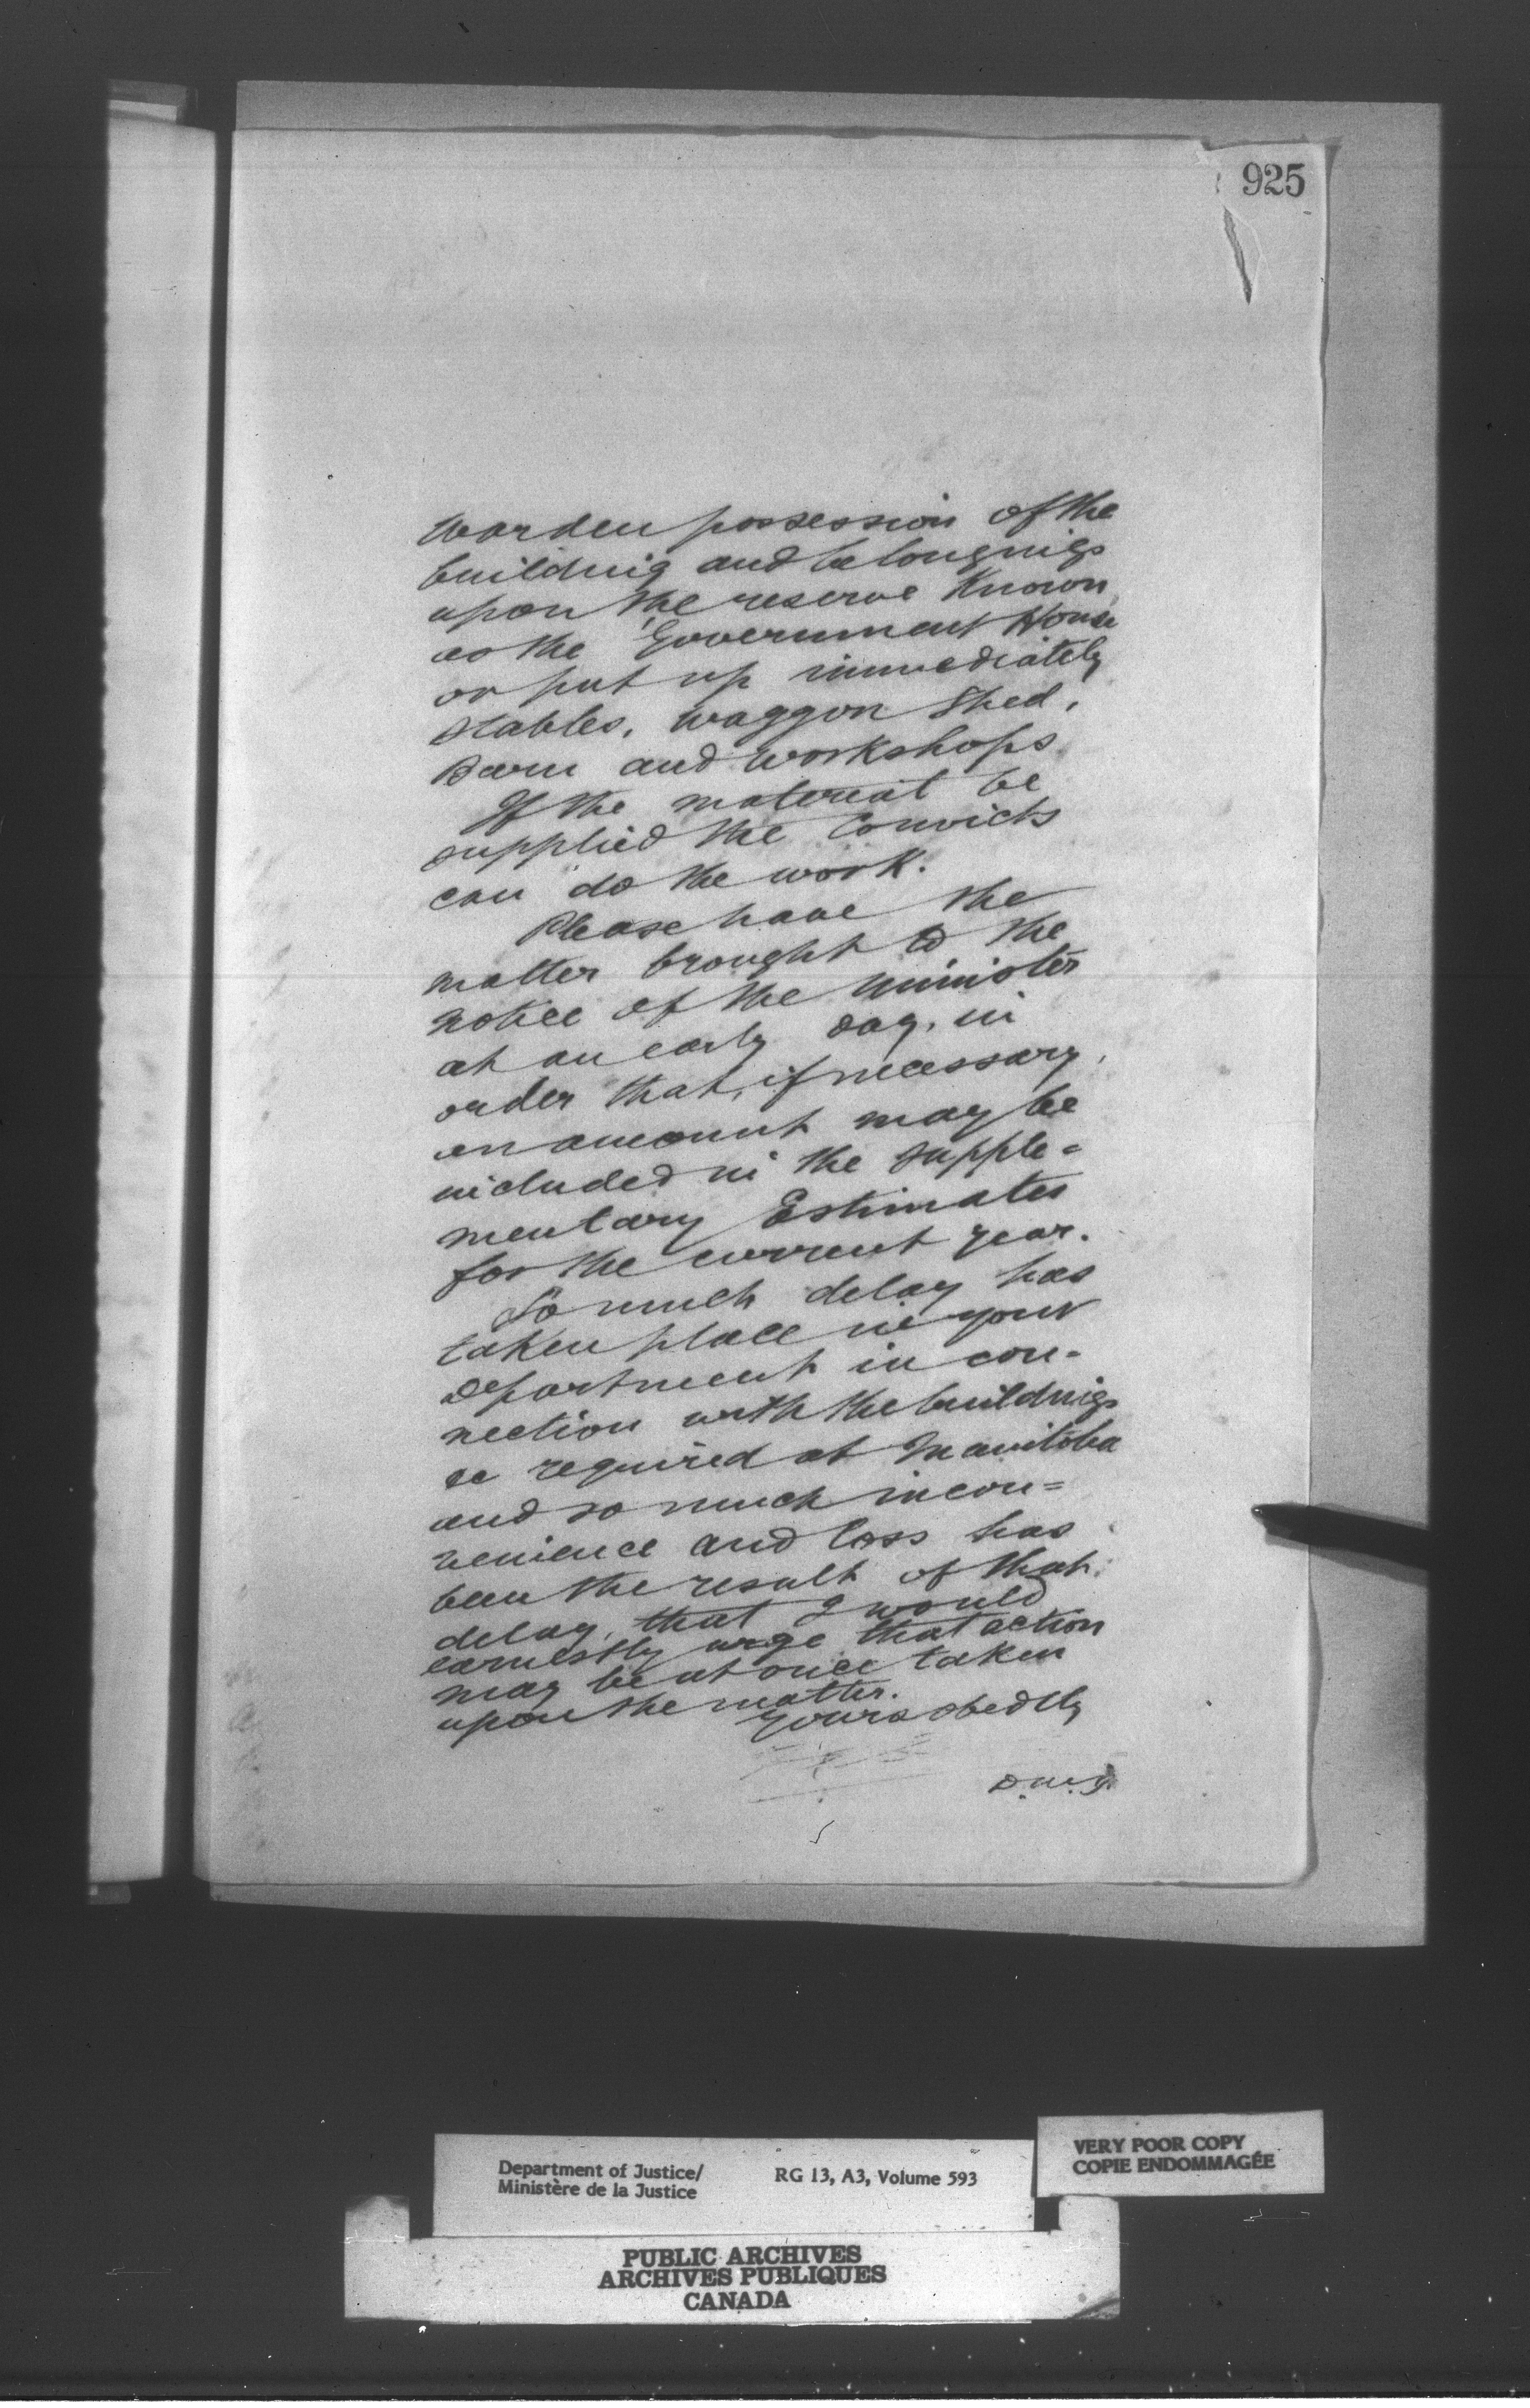 925
Warden possession of the
building and belongings
upon the reserve Known
as the Government House
or put up immediately
stables, waggon Shed,
Barn and workshops.
If the material be
supplied the Convicts
can do the work.
Please have the
matter brought to the
notice of the Minister
at an early day, in
order that, if necessary,
an amount may be
included in the Supple=
mentary Estimates
for the current year.
So much delay has
taken place in your
Department in con-
nection with the buildings
so required at Manitoba
and so much incon=
venience and loss has
been the result of that
delay, that I would
earnestly urge that action
may be at once taken
upon the matter.
Yours obedtly
D.M.J.
Department of Justice/
Ministère de la Justice
RG 13, A3, Volume 593
VERY POOR COPY
COPIE ENDOMMAGÉE
PUBLIC ARCHIVES
ARCHIVES PUBLIQUES
CANADA